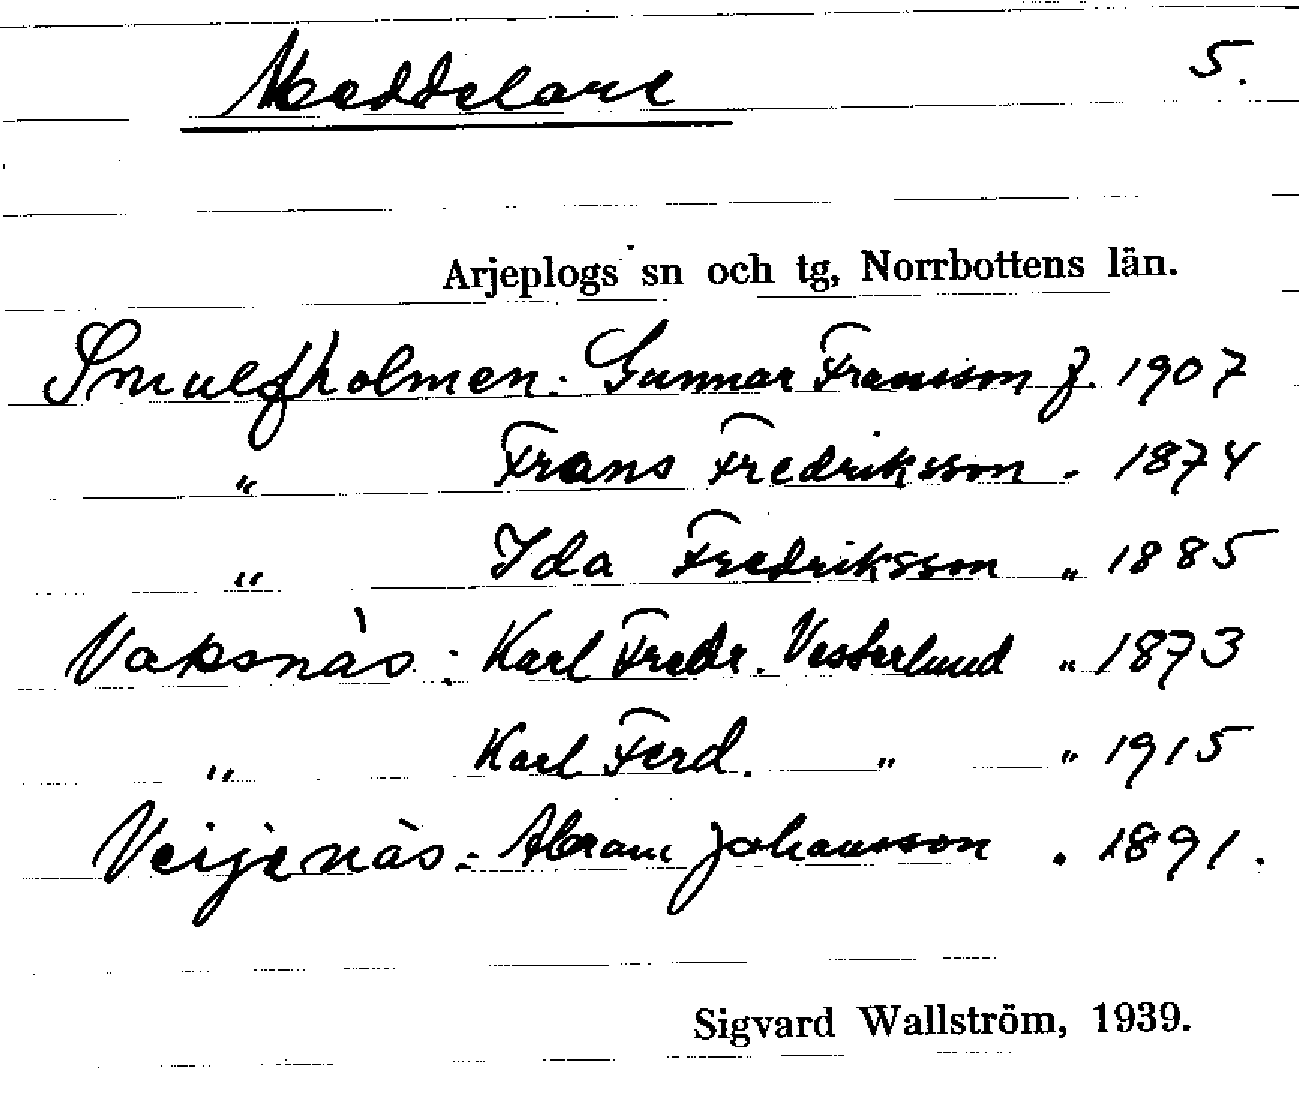 Meddelare 5.
Arjeplogs sn och tg, Norrbottens län.
Smulfholmen: Gunnar Fransson f. 1907
" Frans Fredriksson - 1874
" Ida Fredriksson " 1885
Vaksnäs: Karl Fredr. Vesterlund " 1873
" Karl Ferd. " " 1915
Veijenäs: Abram Johansson . 1891.
Sigvard Wallström, 1939.